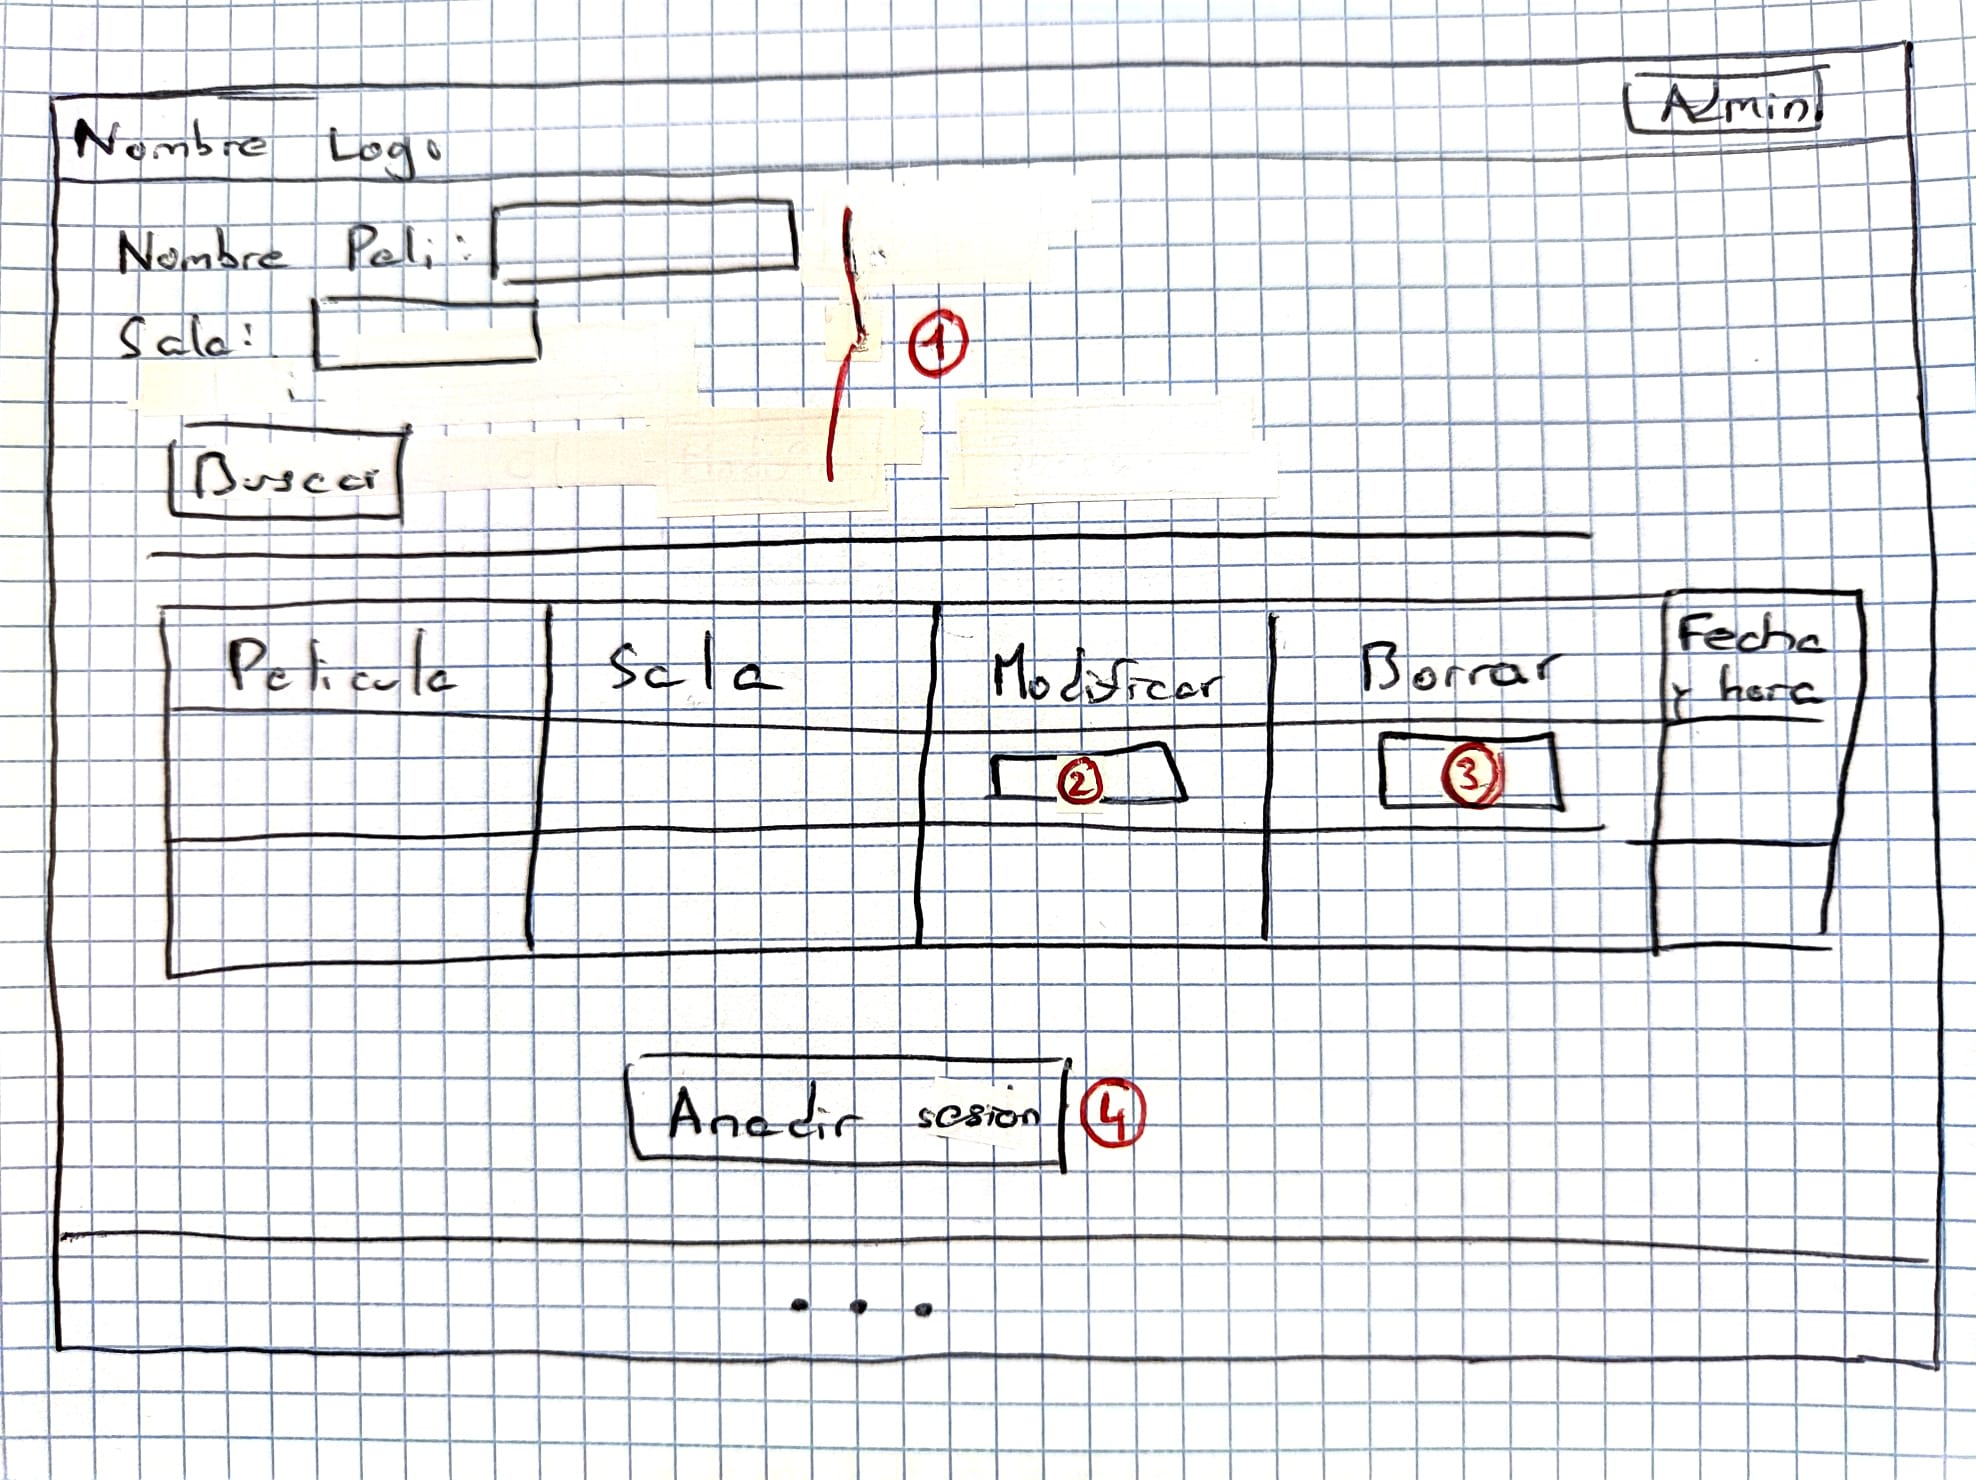 Nombre Logo
Admin
Nombre Peli:
Sala:
1
Buscar
Pelicula
Sala
Modificar
Borrar
Fecha
y hora
2
3
Anadir sesion
4
...